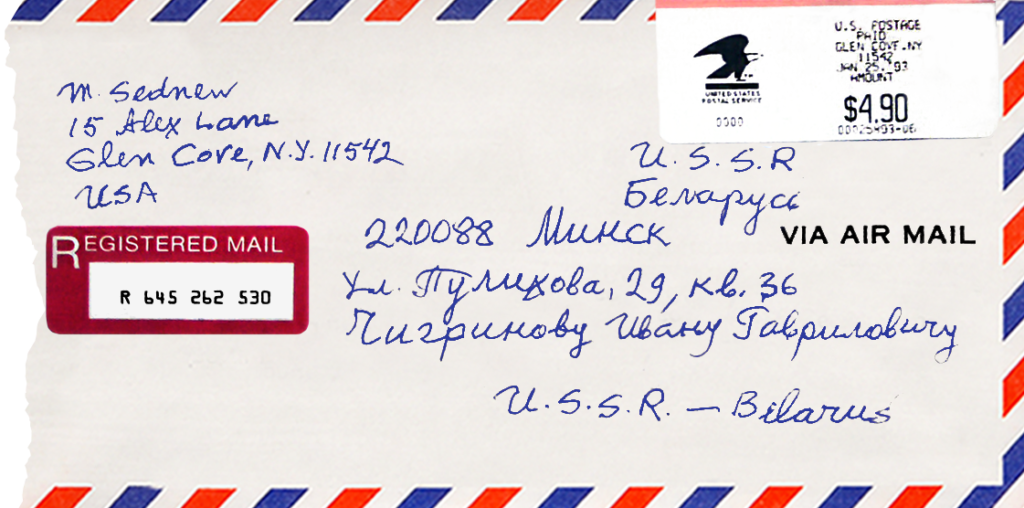 M. Sednew
15 Alex Lane
Glen Cove, N.Y. 11542
USA
U.S. POSTAGE
PAID
GLEN COVE, NY
11542
JAN 25, 93
AMOUNT
$4.90
00025493-06
UNITED STATES
POSTAL SERVICE
0000
U. S. S. R
Беларусь
220088 Минск
VIA AIR MAIL
Ул. Пулихова, 29, кв. 36
Чигринову Ивану Гавриловичу
U. S. S. R. — Belarus
REGISTERED MAIL
R 645 262 530